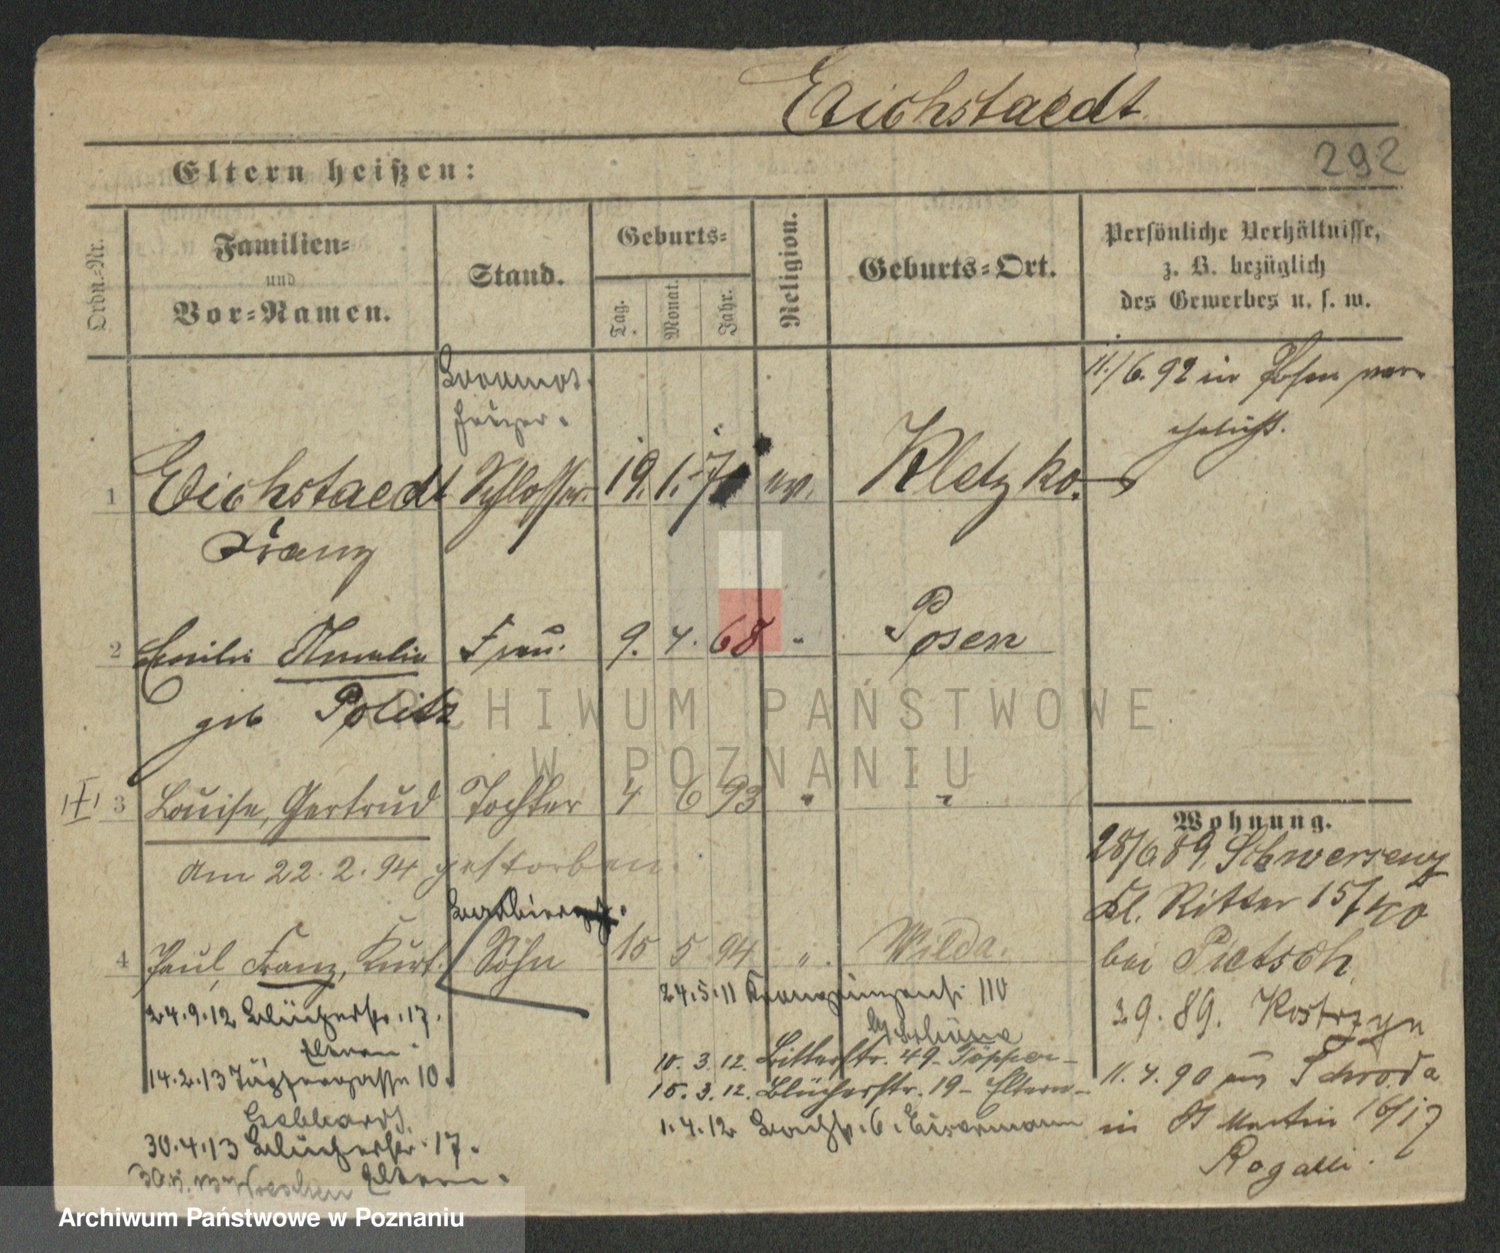 Eichstaedt
292
Eltern heißen:
Ordn.-Nr.
Familien-
und
Vor-Namen.
Stand.
Geburts-
Tag.
Monat.
Jahr.
Religion.
Geburts-Ort.
Persönliche Verhältnisse,
z. B. bezüglich
des Gewerbes u. s. w.
11./6. 92 in Posen ver-
ehelicht.
1 Eichstaedt Schlosser 19. 1. ev. Kletzko.
Franz
2 Emilie Amalie Frau. 9. 4. 68 " Posen
geb Politz
3 Louise, Gertrud Tochter 4 6 93 " "
am 22. 2. 94 gestorben.
4 Paul, Franz, Kurt. Sohn 15 5 94 " Wilda.
Wohnung.
28/6 89. Schwersenz
Kl. Ritter 15/
bei Pietsch
2.9. 89. Kostrzyn
11. 4. 90 aus Schroda
in St Martin 16/17
Rogalli.
24.5.11 110
10. 3. 12. Ritterstr. 49-
15. 3. 12. Blücherstr. 19- Eltern-
1. 4. 12 6.
24.9.12 Blücherstr. 17.
Eltern.
14.2.13 10.
Gebhardt.
30.4.13 Blücherstr. 17.
Eltern.
ARCHIWUM PAŃSTWOWE
W POZNANIU
Archiwum Państwowe w Poznaniu